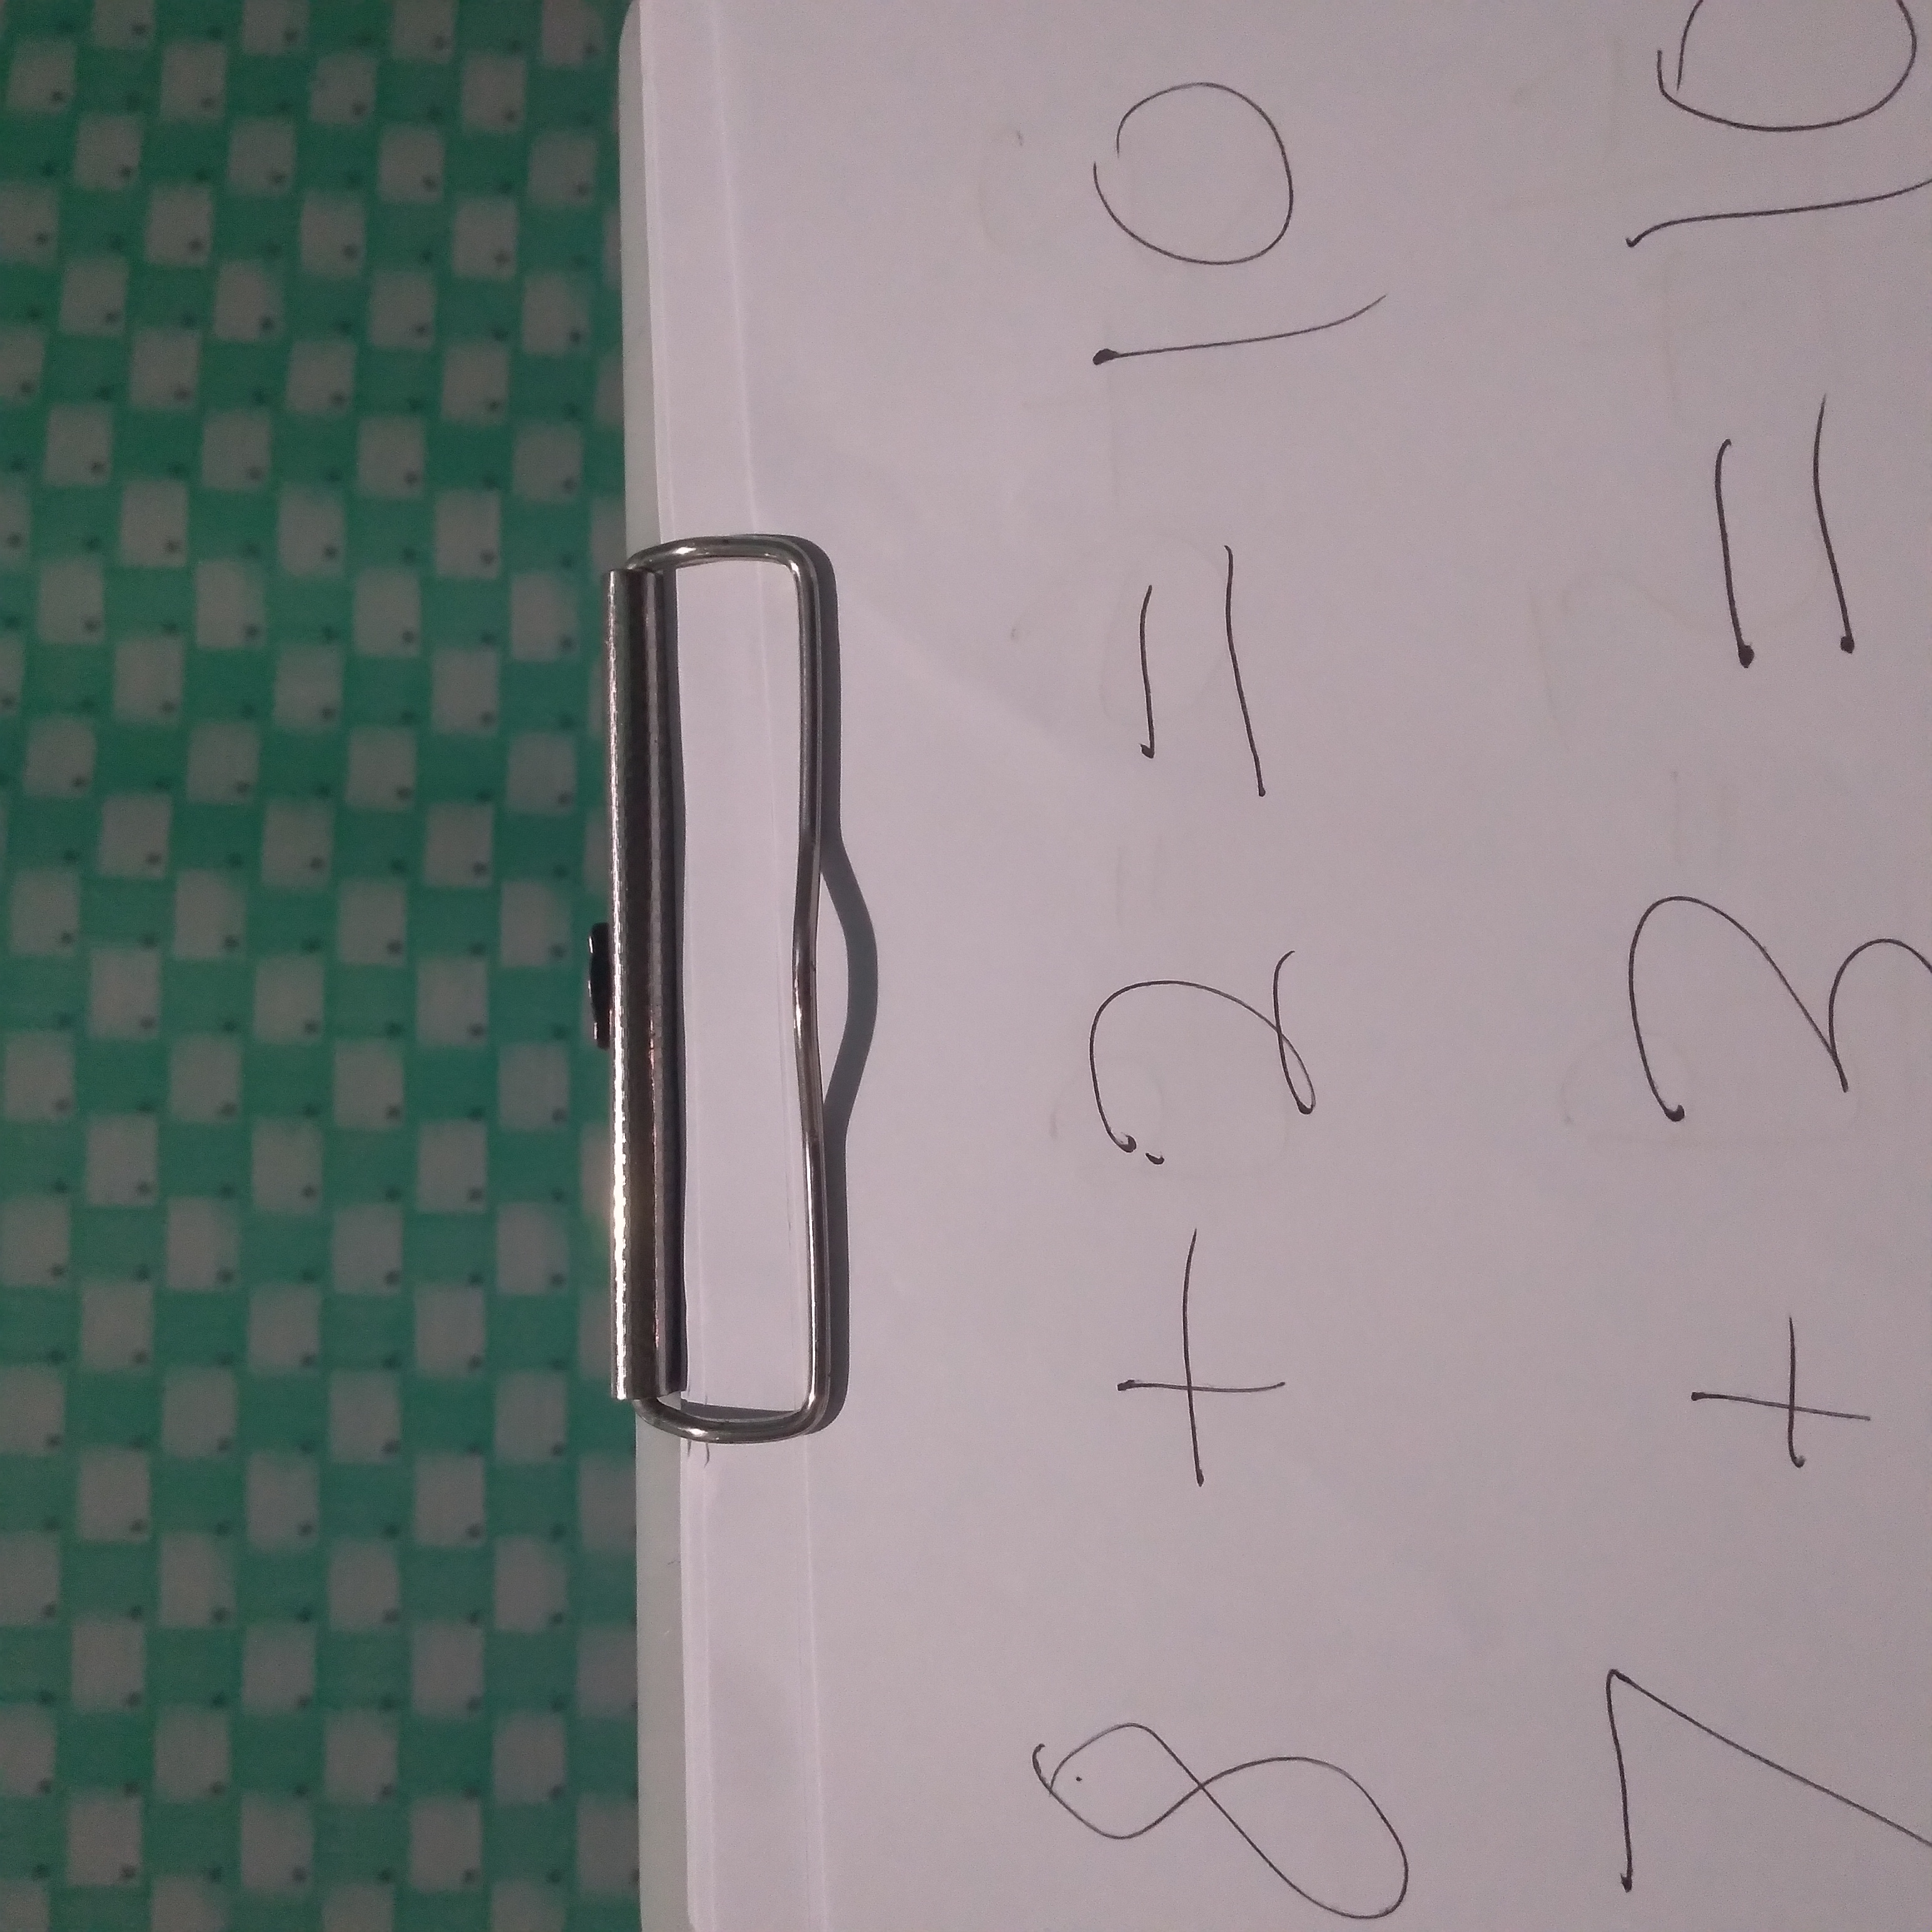 8 + 2 = 10
7 + 3 = 10